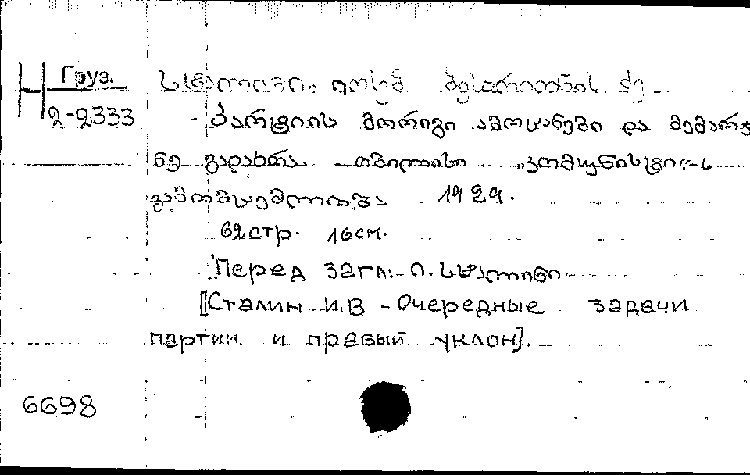 Н Груз.
2-2333
სტალინი იოსებ ბესარიონის ძე
პარტიის მორიგი ამოცანები და მემარჯვ
ნე გადახრა თბილისი "კომუნისტი"-ს
გამომცემლობა 1929.
62 стр. 16 см.
Перед загл.- ი. სტალინი
[Сталин И.В - Очередные задачи
партии и правый уклон].
6698